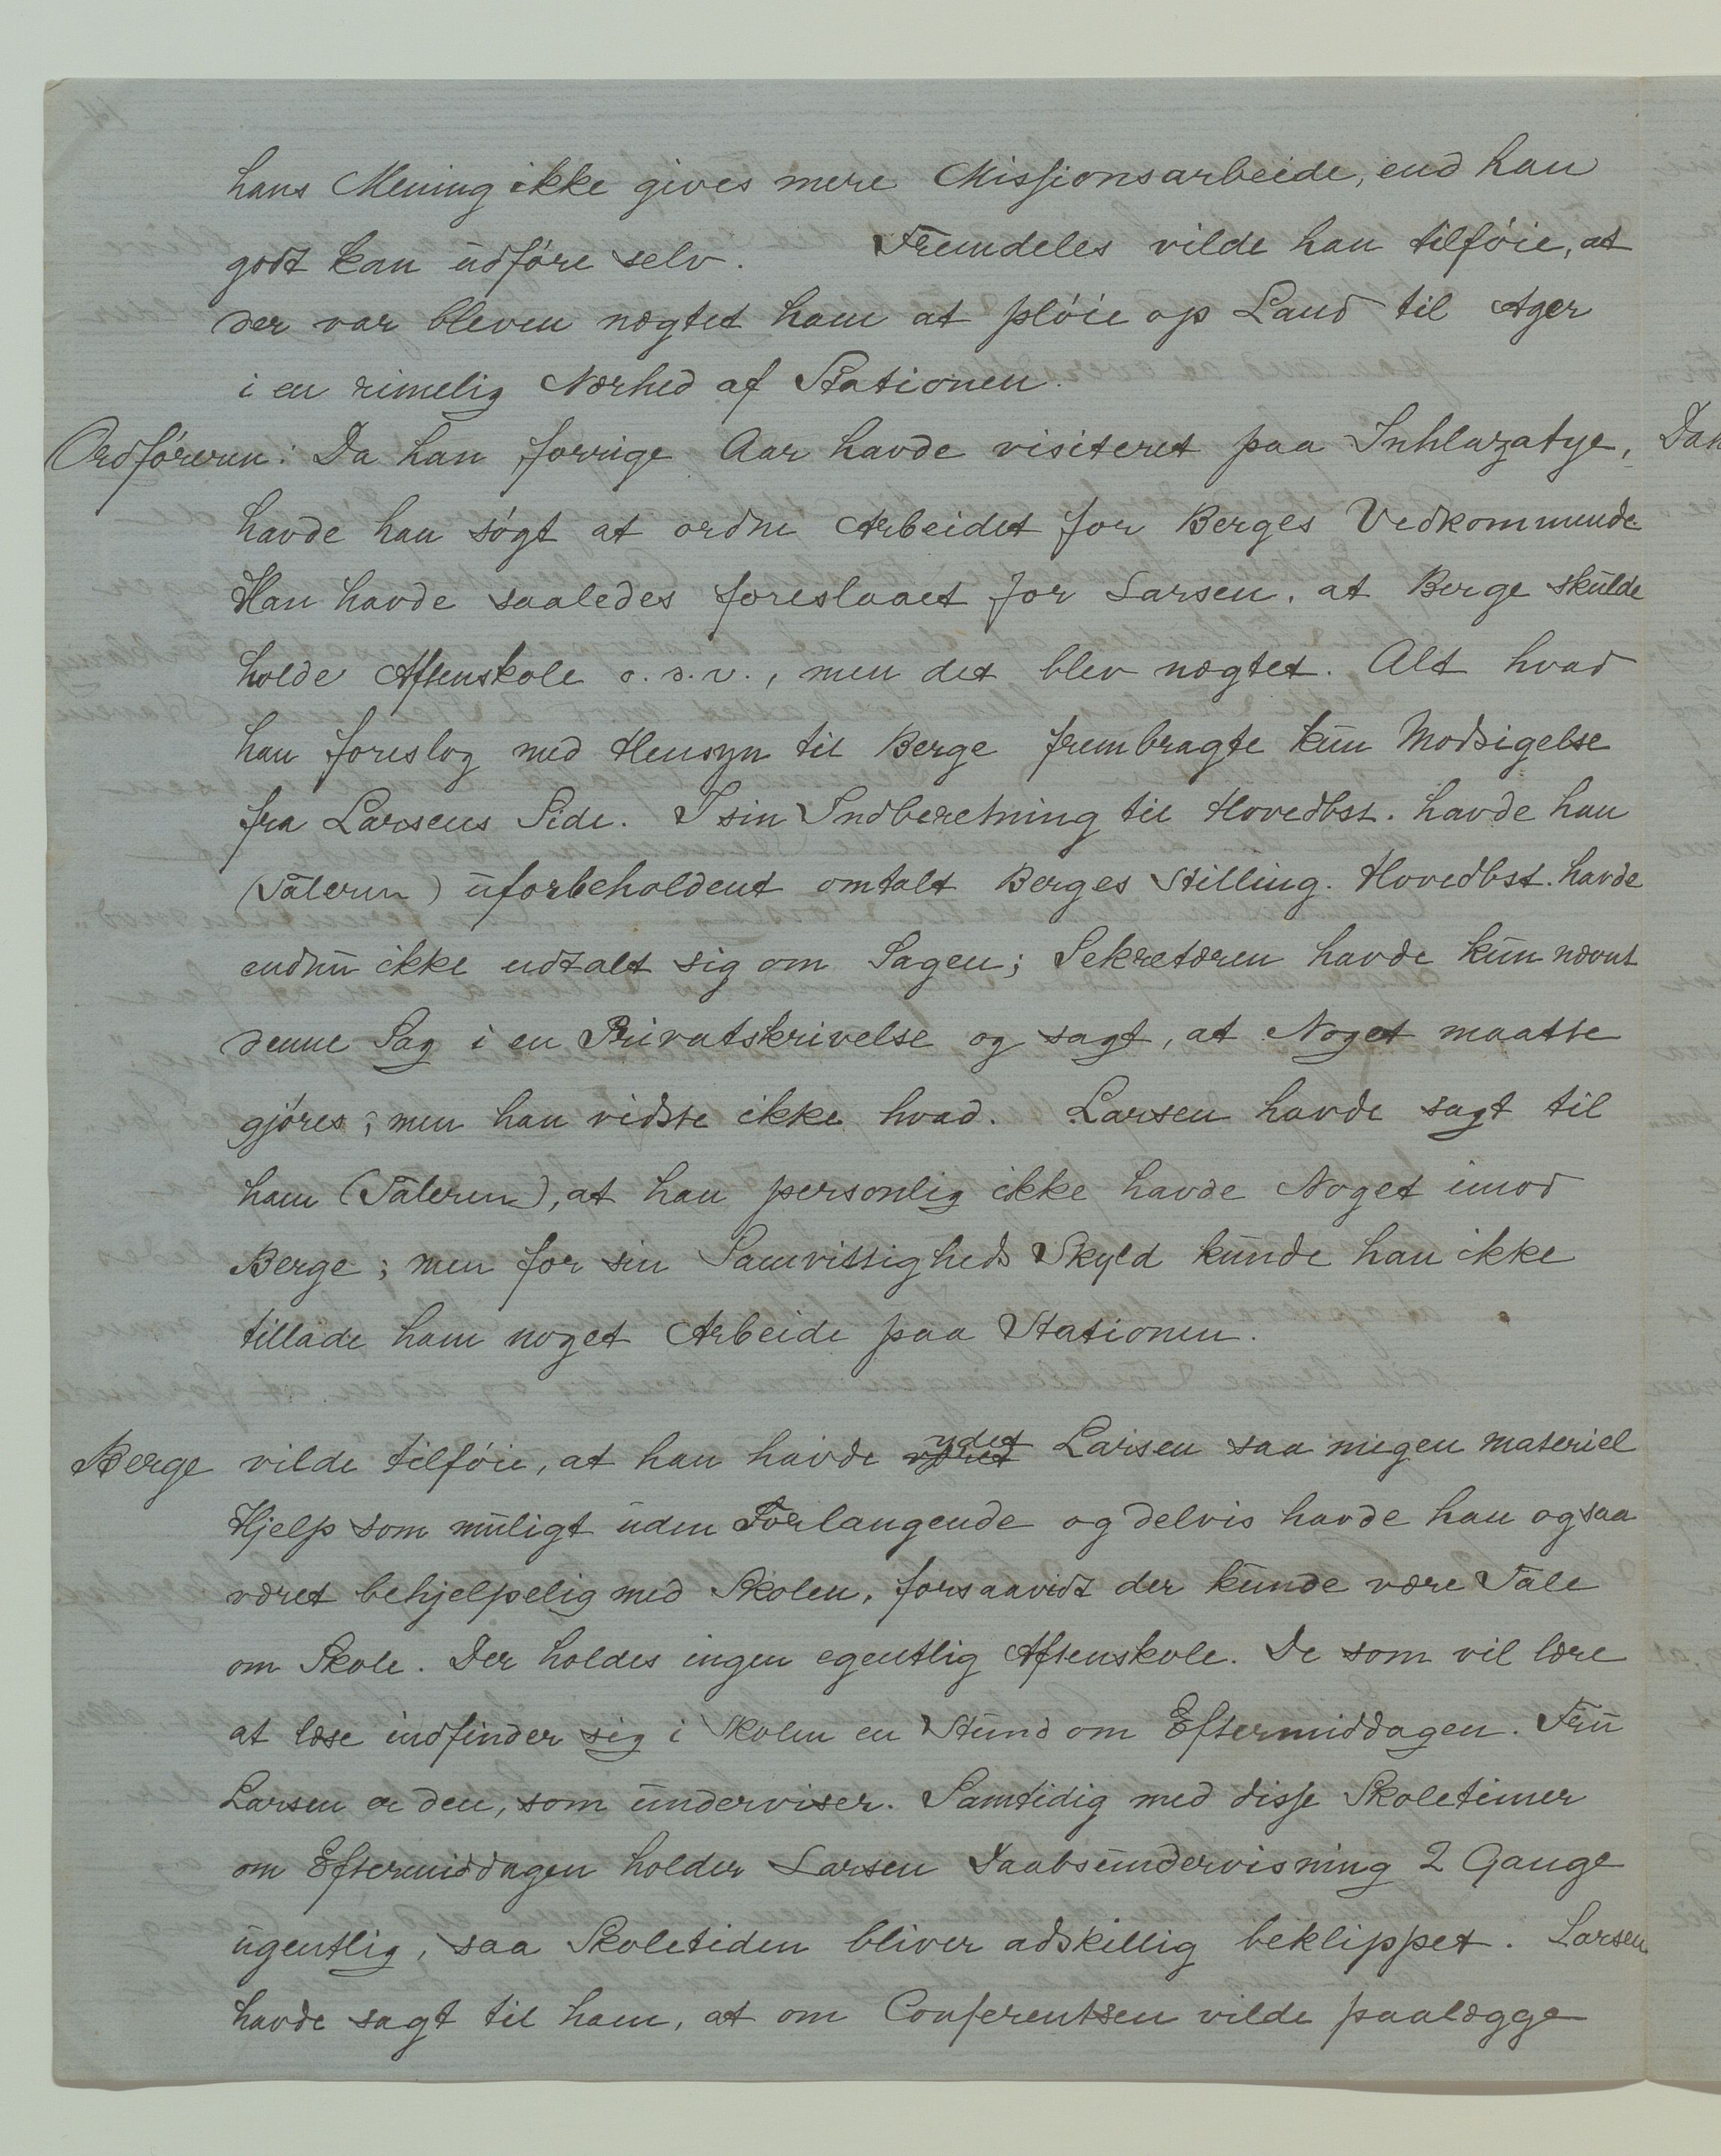 hans Mening ikke gives mere Missionsarbeide, end han
godt kan udføre selv. Fremdeles vilde han tilføie, at
der var bleven nægtet ham at pløie op Land til Ager
i en rimelig Nærhed af Stationen.
Ordføreren: Da han forrige Aar havde visiteret paa Inhlazatye,
havde han søgt at ordne Arbeidet for Berges Vedkommende.
Han havde saaledes foreslaaet for Larsen, at Berge skulde
holde Aftenskole o.s.v., men det blev nægtet. Alt hvad
han foreslog med Hensyn til Berge frembragte kun Modsigelse
fra Larsens Side. I sin Indberetning til Hovedbst. havde han
(Taleren) uforbeholdent omtalt Berges Stilling. Hovedbst. havde
endnu ikke udtalt sig om Sagen; Sekretæren havde kun nævnt
denne Sag i en Privatskrivelse og sagt, at Noget maatte
gjøres; men han vidste ikke hvad. Larsen havde sagt til
ham (Taleren), at han personlig ikke havde Noget imod
Berge; men for sin Samvittigheds Skyld kunde han ikke
tillade ham noget Arbeide paa Stationen.
Berge vilde tilføie, at han havde ydet Larsen saa megen materiel
Hjelp som muligt uden Forlangende og delvis havde han ogsaa
været behjelpelig med Skolen, forsaavidt der kunde være Tale
om Skole. Der holdes ingen egentlig Aftenskole. De som vil lære
at læse indfinder sig i Skolen en Stund om Eftermiddagen. Fru
Larsen er den, som underviser. Samtidig med disse Skoletimer
om Eftermiddagen holder Larsen Daabsundervisning 2 Gange
ugentlig, saa Skoletiden bliver adskillig beklippet. Larsen
havde sagt til ham, at om Conferentsen vilde paalægge